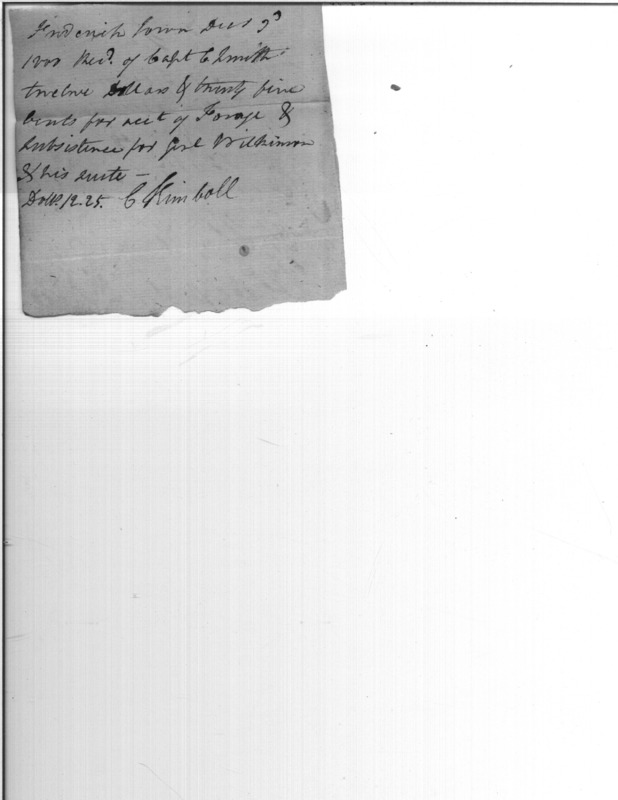 Frederick Town Decr 9d
1700 Recd. of Capt C Smith
twelve Dollars & twenty five
Cents for acct of Forage &
Subsistence for Genl Wilkinson
& his suite —
Dolls. 12.25. C Kimboll